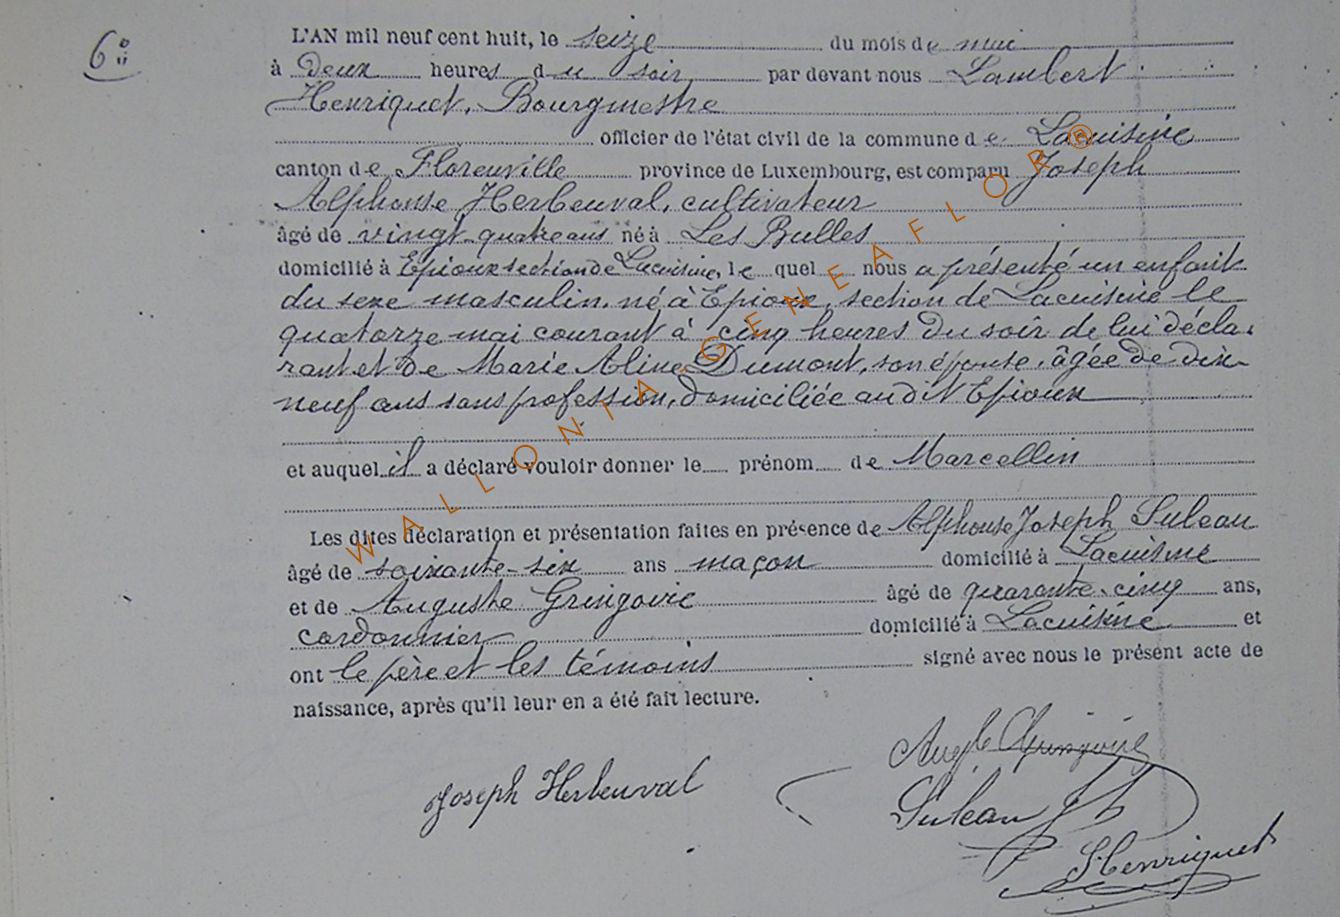 6°
L'AN mil neuf cent huit, le seize du mois de mai
à Deux heures du soir, par devant nous Lambert
Henriquet, Bourgmestre
officier de l'état civil de la commune de Lacuisine
canton de Florenville province de Luxembourg, est comparu Joseph
Alphonse Herbeuval, cultivateur
âgé de vingt-quatre ans né à Les Bulles
domicilié à Epioux section de Lacuisine, lequel nous a présenté un enfant
du sexe masculin, né à Epioux, section de Lacuisine le
quatorze mai courant à cinq heures du soir de lui décla-
rant et de Marie Aline Dumont, son épouse, âgée de dix-
neuf ans sans profession, domiciliée au dit Epioux
et auquel il a déclaré vouloir donner le prénom de Marcellin
Les dites déclaration et présentation faites en présence de Alphonse Joseph Suleau
âgé de soixante-six ans maçon domicilié à Lacuisine
et de Auguste Gringoire âgé de quarante-cinq ans,
cordonnier domicilié à Lacuisine et
ont le père et les témoins signé avec nous le présent acte de
naissance, après qu'il leur en a été fait lecture.
Augte Gringoire
Joseph Herbeuval
Suleau
Henriquet
WALLONIA-GENEAFLOR®